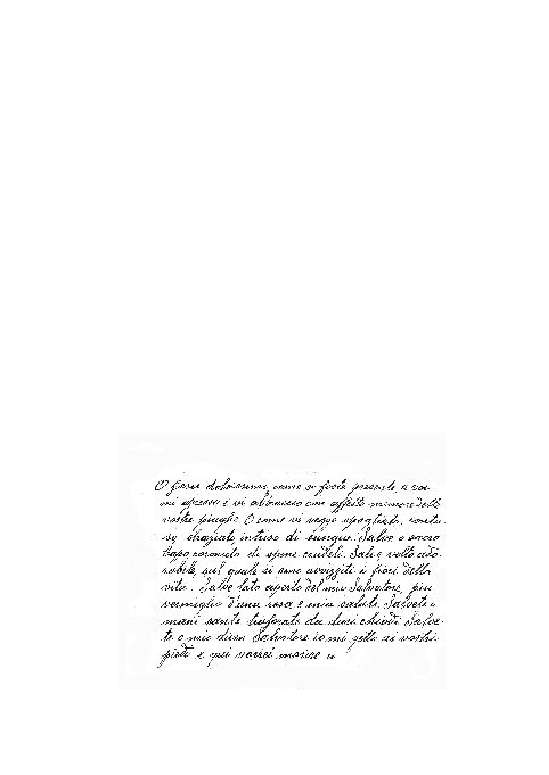 O Gesù dolcissimo, come se foste presente, a voi
mi appresso e vi abbraccio con affetto memore delle
vostre piaghe. O come vi veggo spogliato, contu-
so, straziato, intriso di sangue. Salve o sacro
Capo coronato di spine crudeli. Salve volto ado-
rabile, sul quale si sono avvizziti i fiori della
vita. Salve lato aperto del mio Salvatore, più
vermiglio d'una rosa, e mia salute. Salvete o
mani sante traforate da duri chiodi. Salve-
te o mio Salvatore io mi getto ai vostri
piedi e qui vorrei morire